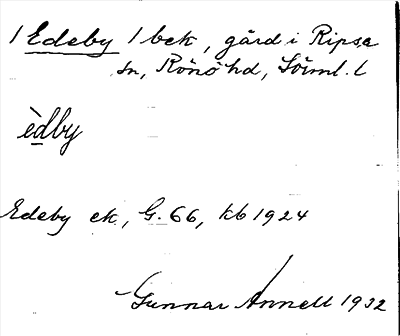 / Edeby / bek, gård i Ripsa
sn, Rönö hd, Sörml. l
èdby
Edeby ek., G. 66, kb 1924
Gunnar Annell 1932